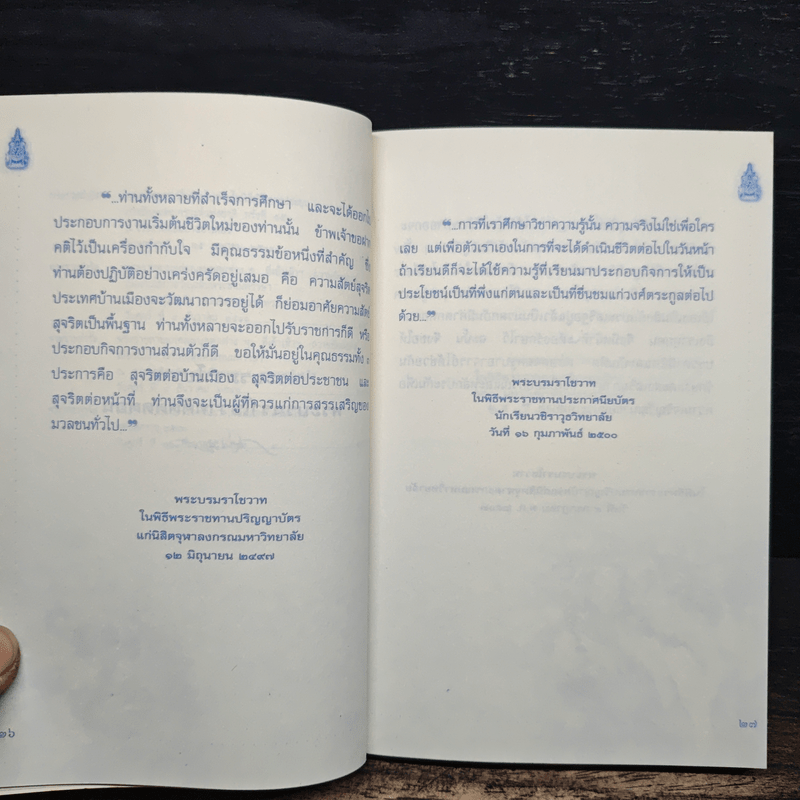 “...ท่านทั้งหลายที่สำเร็จการศึกษา และจะได้ออกไป
ประกอบการงานเริ่มต้นชีวิตใหม่ของท่านนั้น ข้าพเจ้าขอฝาก
คติไว้เป็นเครื่องกำกับใจ มีคุณธรรมข้อหนึ่งที่สำคัญ ซึ่ง
ท่านต้องปฏิบัติอย่างเคร่งครัดอยู่เสมอ คือ ความสัตย์สุจริต
ประเทศบ้านเมืองจะวัฒนาถาวรอยู่ได้ ก็ย่อมอาศัยความสัตย์
สุจริตเป็นพื้นฐาน ท่านทั้งหลายจะออกไปรับราชการก็ดี หรือ
ประกอบกิจการงานส่วนตัวก็ดี ขอให้มั่นอยู่ในคุณธรรมทั้ง ๓
ประการคือ สุจริตต่อบ้านเมือง สุจริตต่อประชาชน และ
สุจริตต่อหน้าที่ ท่านจึงจะเป็นผู้ที่ควรแก่การสรรเสริญของ
มวลชนทั่วไป...”
พระบรมราโชวาท
ในพิธีพระราชทานปริญญาบัตร
แก่นิสิตจุฬาลงกรณมหาวิทยาลัย
๑๒ มิถุนายน ๒๔๙๗
๒๖
“...การที่เราศึกษาวิชาความรู้นั้น ความจริงไม่ใช่เพื่อใคร
เลย แต่เพื่อตัวเราเองในการที่จะได้ดำเนินชีวิตต่อไปในวันหน้า
ถ้าเรียนดีก็จะได้ใช้ความรู้ที่เรียนมาประกอบกิจการให้เป็น
ประโยชน์เป็นที่พึ่งแก่ตนและเป็นที่ชื่นชมแก่วงศ์ตระกูลต่อไป
ด้วย...”
พระบรมราโชวาท
ในพิธีพระราชทานประกาศนียบัตร
นักเรียนวชิราวุธวิทยาลัย
วันที่ ๑๖ กุมภาพันธ์ ๒๕๐๐
๒๗